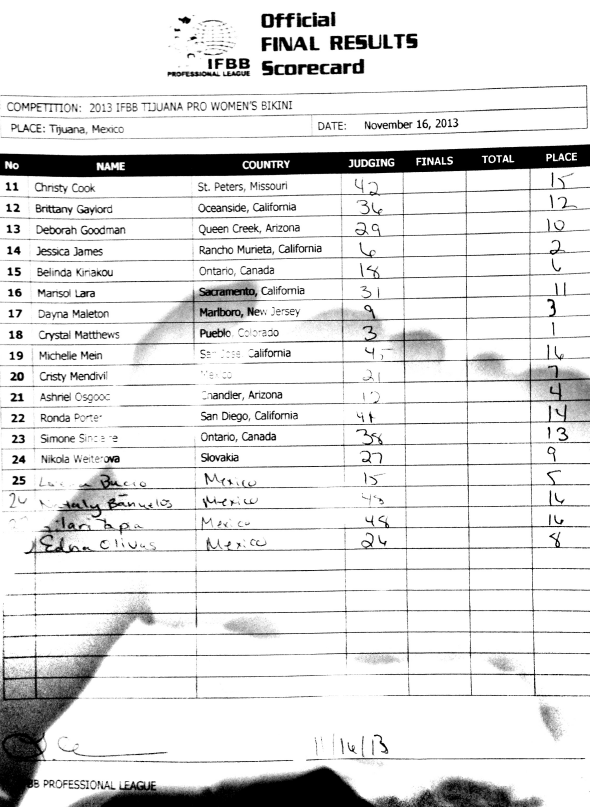 Official
FINAL RESULTS
Scorecard
IFBB
PROFESSIONAL LEAGUE
COMPETITION: 2013 IFBB TIJUANA PRO WOMEN'S BIKINI
PLACE: Tijuana, Mexico DATE: November 16, 2013
No NAME COUNTRY JUDGING FINALS TOTAL PLACE
11 Christy Cook St. Peters, Missouri 42 15
12 Brittany Gaylord Oceanside, California 36 12
13 Deborah Goodman Queen Creek, Arizona 29 10
14 Jessica James Rancho Murieta, California 6 2
15 Belinda Kiriakou Ontario, Canada 18 6
16 Marisol Lara Sacramento, California 31 11
17 Dayna Maleton Marlboro, New Jersey 9 3
18 Crystal Matthews Pueblo, Colorado 3 1
19 Michelle Mein San Jose, California 45 16
20 Cristy Mendivil Mexico 21 7
21 Ashriel Osgood Chandler, Arizona 12 4
22 Ronda Porter San Diego, California 41 14
23 Simone Sinclaire Ontario, Canada 38 13
24 Nikola Weiterova Slovakia 27 9
25 Bucio Mexico 15 5
26 Nataly Bañuelos Mexico 48 16
Tapia Mexico 48 16
Edna Olivas Mexico 26 8
11/16/13
PROFESSIONAL LEAGUE